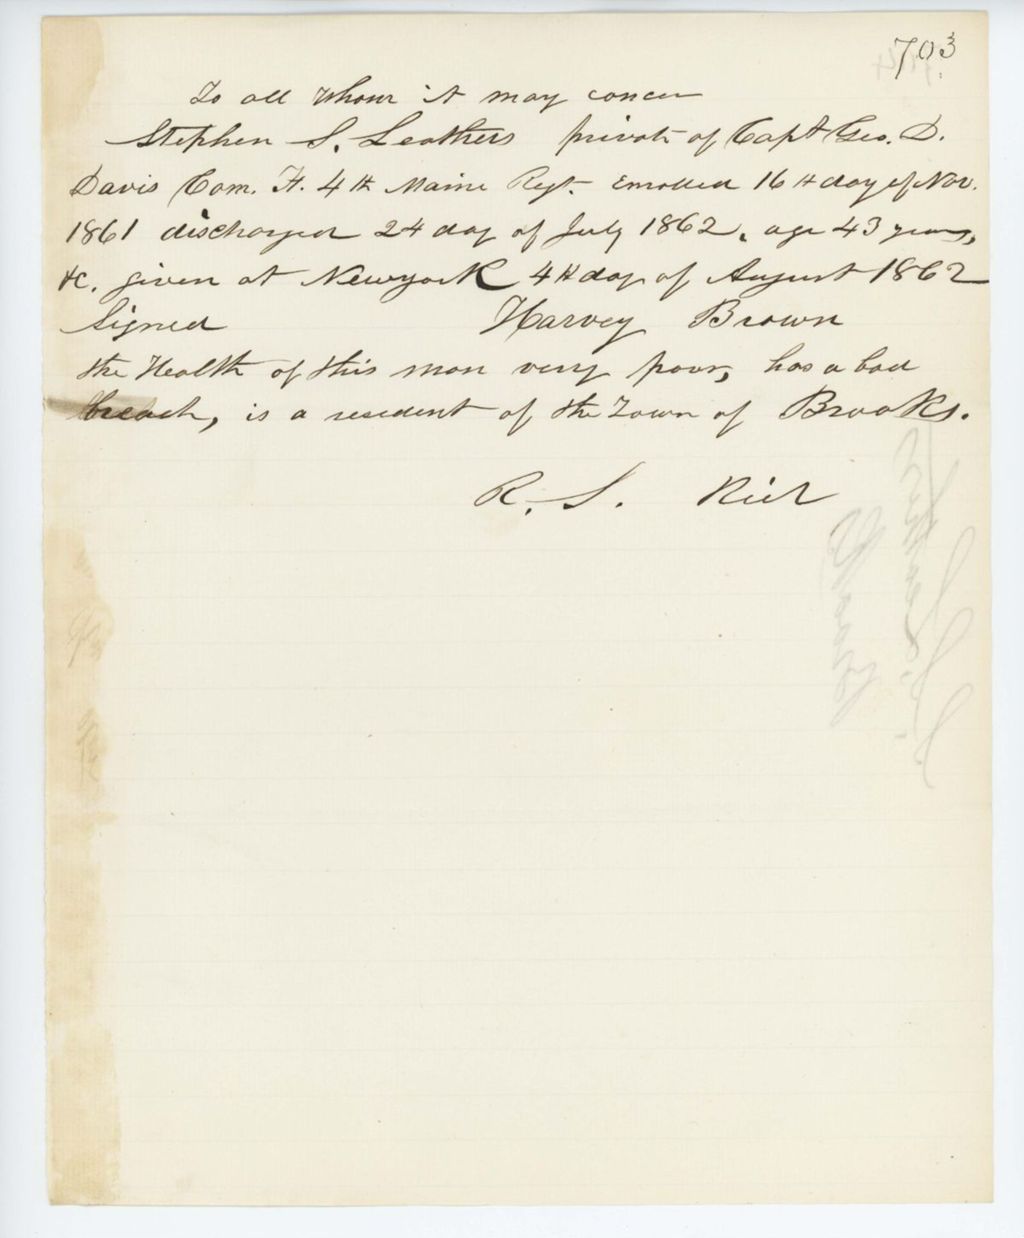 703
To all whom it may concer
Stephen S. Leathers private of Capt Geo. D.
Davis Com. H. 4th Maine Regt. Enrolled 16th day of Nov.
1861 discharged 24 day of July 1862, age 43 years,
&c. given at Newyork 4th day of August 1862
Signed Harvey Brown
the Health of this man very poor, has a bad
breach, is a resident of the Town of Brooks.
R. S. Rich